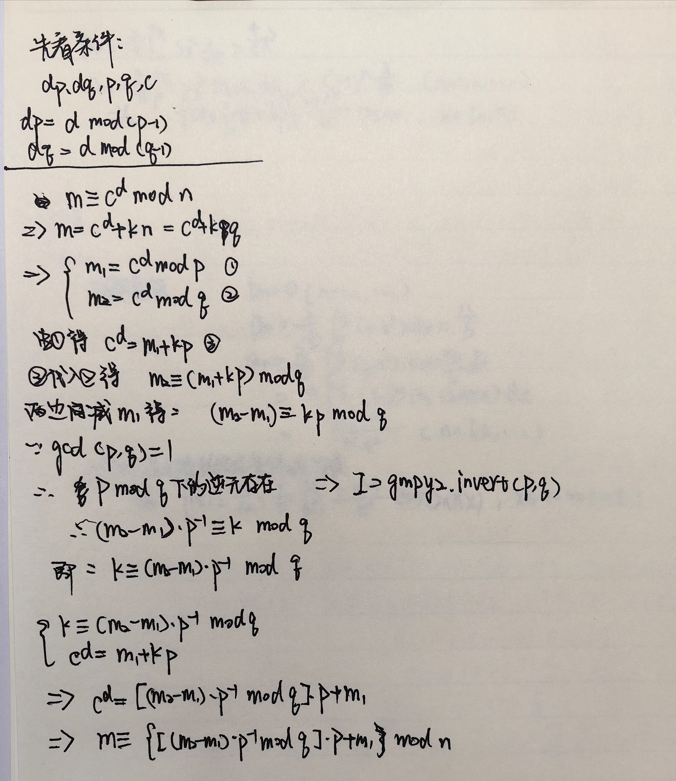 先看条件:
dp, dq, p, q, c
dp = d mod (p-1)
dq = d mod (q-1)
m ≡ c^d mod n
=> m = c^d + kn = c^d + kpq
=> { m₁ = c^d mod p ①
m₂ = c^d mod q ②
由①得 c^d = m₁ + kp ③
③代入②得 m₂ ≡ (m₁ + kp) mod q
两边同减 m₁ 得: (m₂ - m₁) ≡ kp mod q
∵ gcd (p, q) = 1
∴ p mod q 下的逆元存在 => I = gmpy2.invert (p, q)
∴ (m₂ - m₁) · p⁻¹ ≡ k mod q
即: k ≡ (m₂ - m₁) · p⁻¹ mod q
{ k ≡ (m₂ - m₁) · p⁻¹ mod q
c^d = m₁ + kp
=> c^d = [(m₂ - m₁) · p⁻¹ mod q] · p + m₁
=> m ≡ {[(m₂ - m₁) · p⁻¹ mod q] · p + m₁} mod n